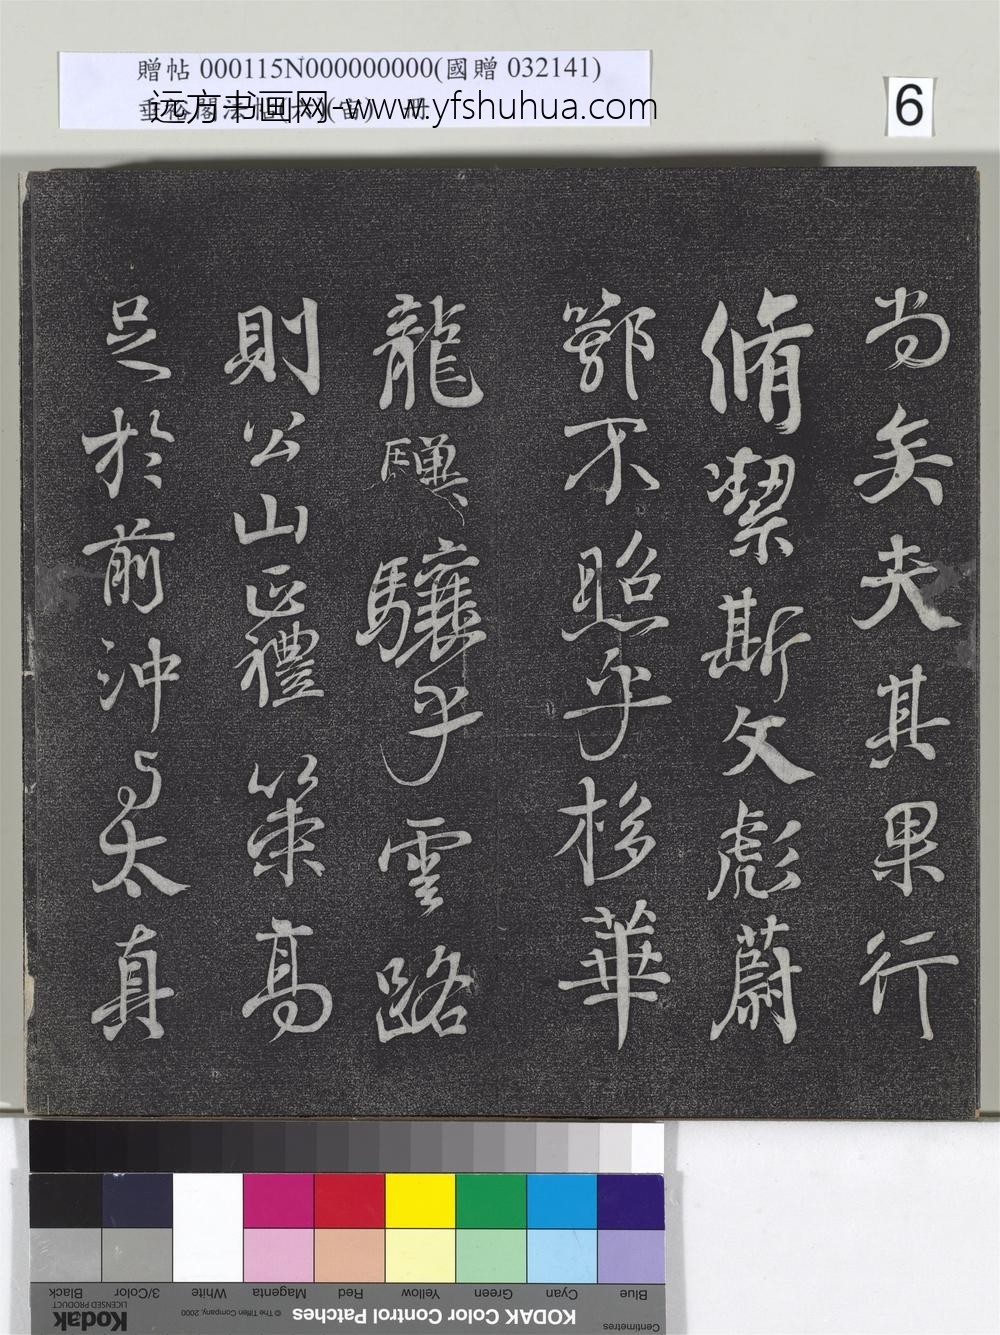 贈帖 000115N000000000(國贈 032141)
远方书画网-www.yfshuhua.com
6
尚矣夫其果行
脩潔斯文彪蔚
鄂不照乎移華
龍驥驤乎雲路
則公山正禮策高
足於前沖与太真
Blue Cyan Green Yellow Red Magenta White 3/Color Black
Centimetres KODAK Color Control Patches © The Tiffen Company, 2000 Kodak
LICENSED PRODUCT